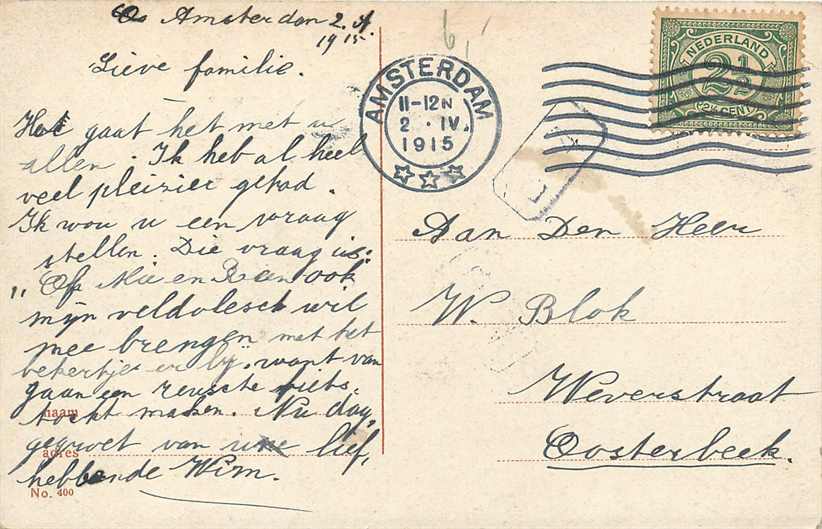 Amsterdam 2. A.
1915
Lieve familie.
Hoe gaat het met u
allen. Ik heb al heel
veel pleizier gehad.
Ik wou u een vraag
stellen. Die vraag is:
"Of Mie en Rien ook
mijn veldflesch wil
mee brengen met het
bekertje er bij, want van
gaan een reusche fiets
tocht maken. Nu dag,
gegroet van uwe lief,
hebbende Wim.
naam
adres
No. 400
AMSTERDAM
11-12N
2 . IV.
1915
NEDERLAND
2½
2½ CENT
Aan Den Heer
W. Blok
Weverstraat
Oosterbeek.